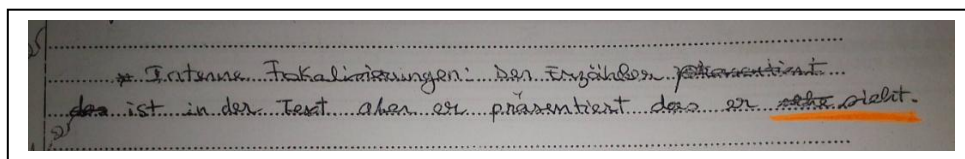 * Interne Fokalisierungen: Der Erzähler präsentiert
das ist in der Text aber er präsentiert das er sehe sieht.